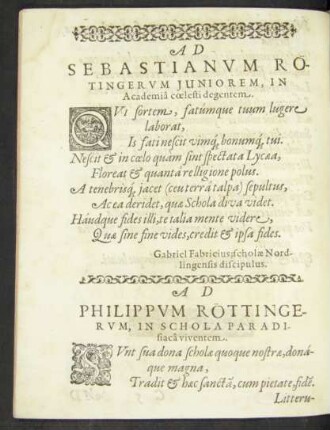 AD
SEBASTIANVM RÖ-
TINGERVM JUNIOREM, IN
Academiâ cœlesti degentem.
QVi sortem, fatúmque tuum lugere
laborat,
Is fati nescit vimq́, bonumq́, tui.
Nescit & in cœlo quàm sint spectata Lycæa,
Floreat & quantâ relligione polus.
A tenebrisq́, jacet (ceu terrâ talpa) sepultus,
Ac ea deridet, quæ Schola diva videt.
Háudque fides illi, te talia mente videre,
Quæ sine fine vides, credit & ipsa fides.
Gabriel Fabricius, scholæ Nord-
lingensis discipulus.
AD
PHILIPPVM RÖTTINGE-
RVM, IN SCHOLA PARADI-
siacâ viventem.
SVnt sua dona scholæ quoque nostræ, doná-
que magna,
Tradit & hæc sanctã, cum pietate, fidẽ.
Litteru-